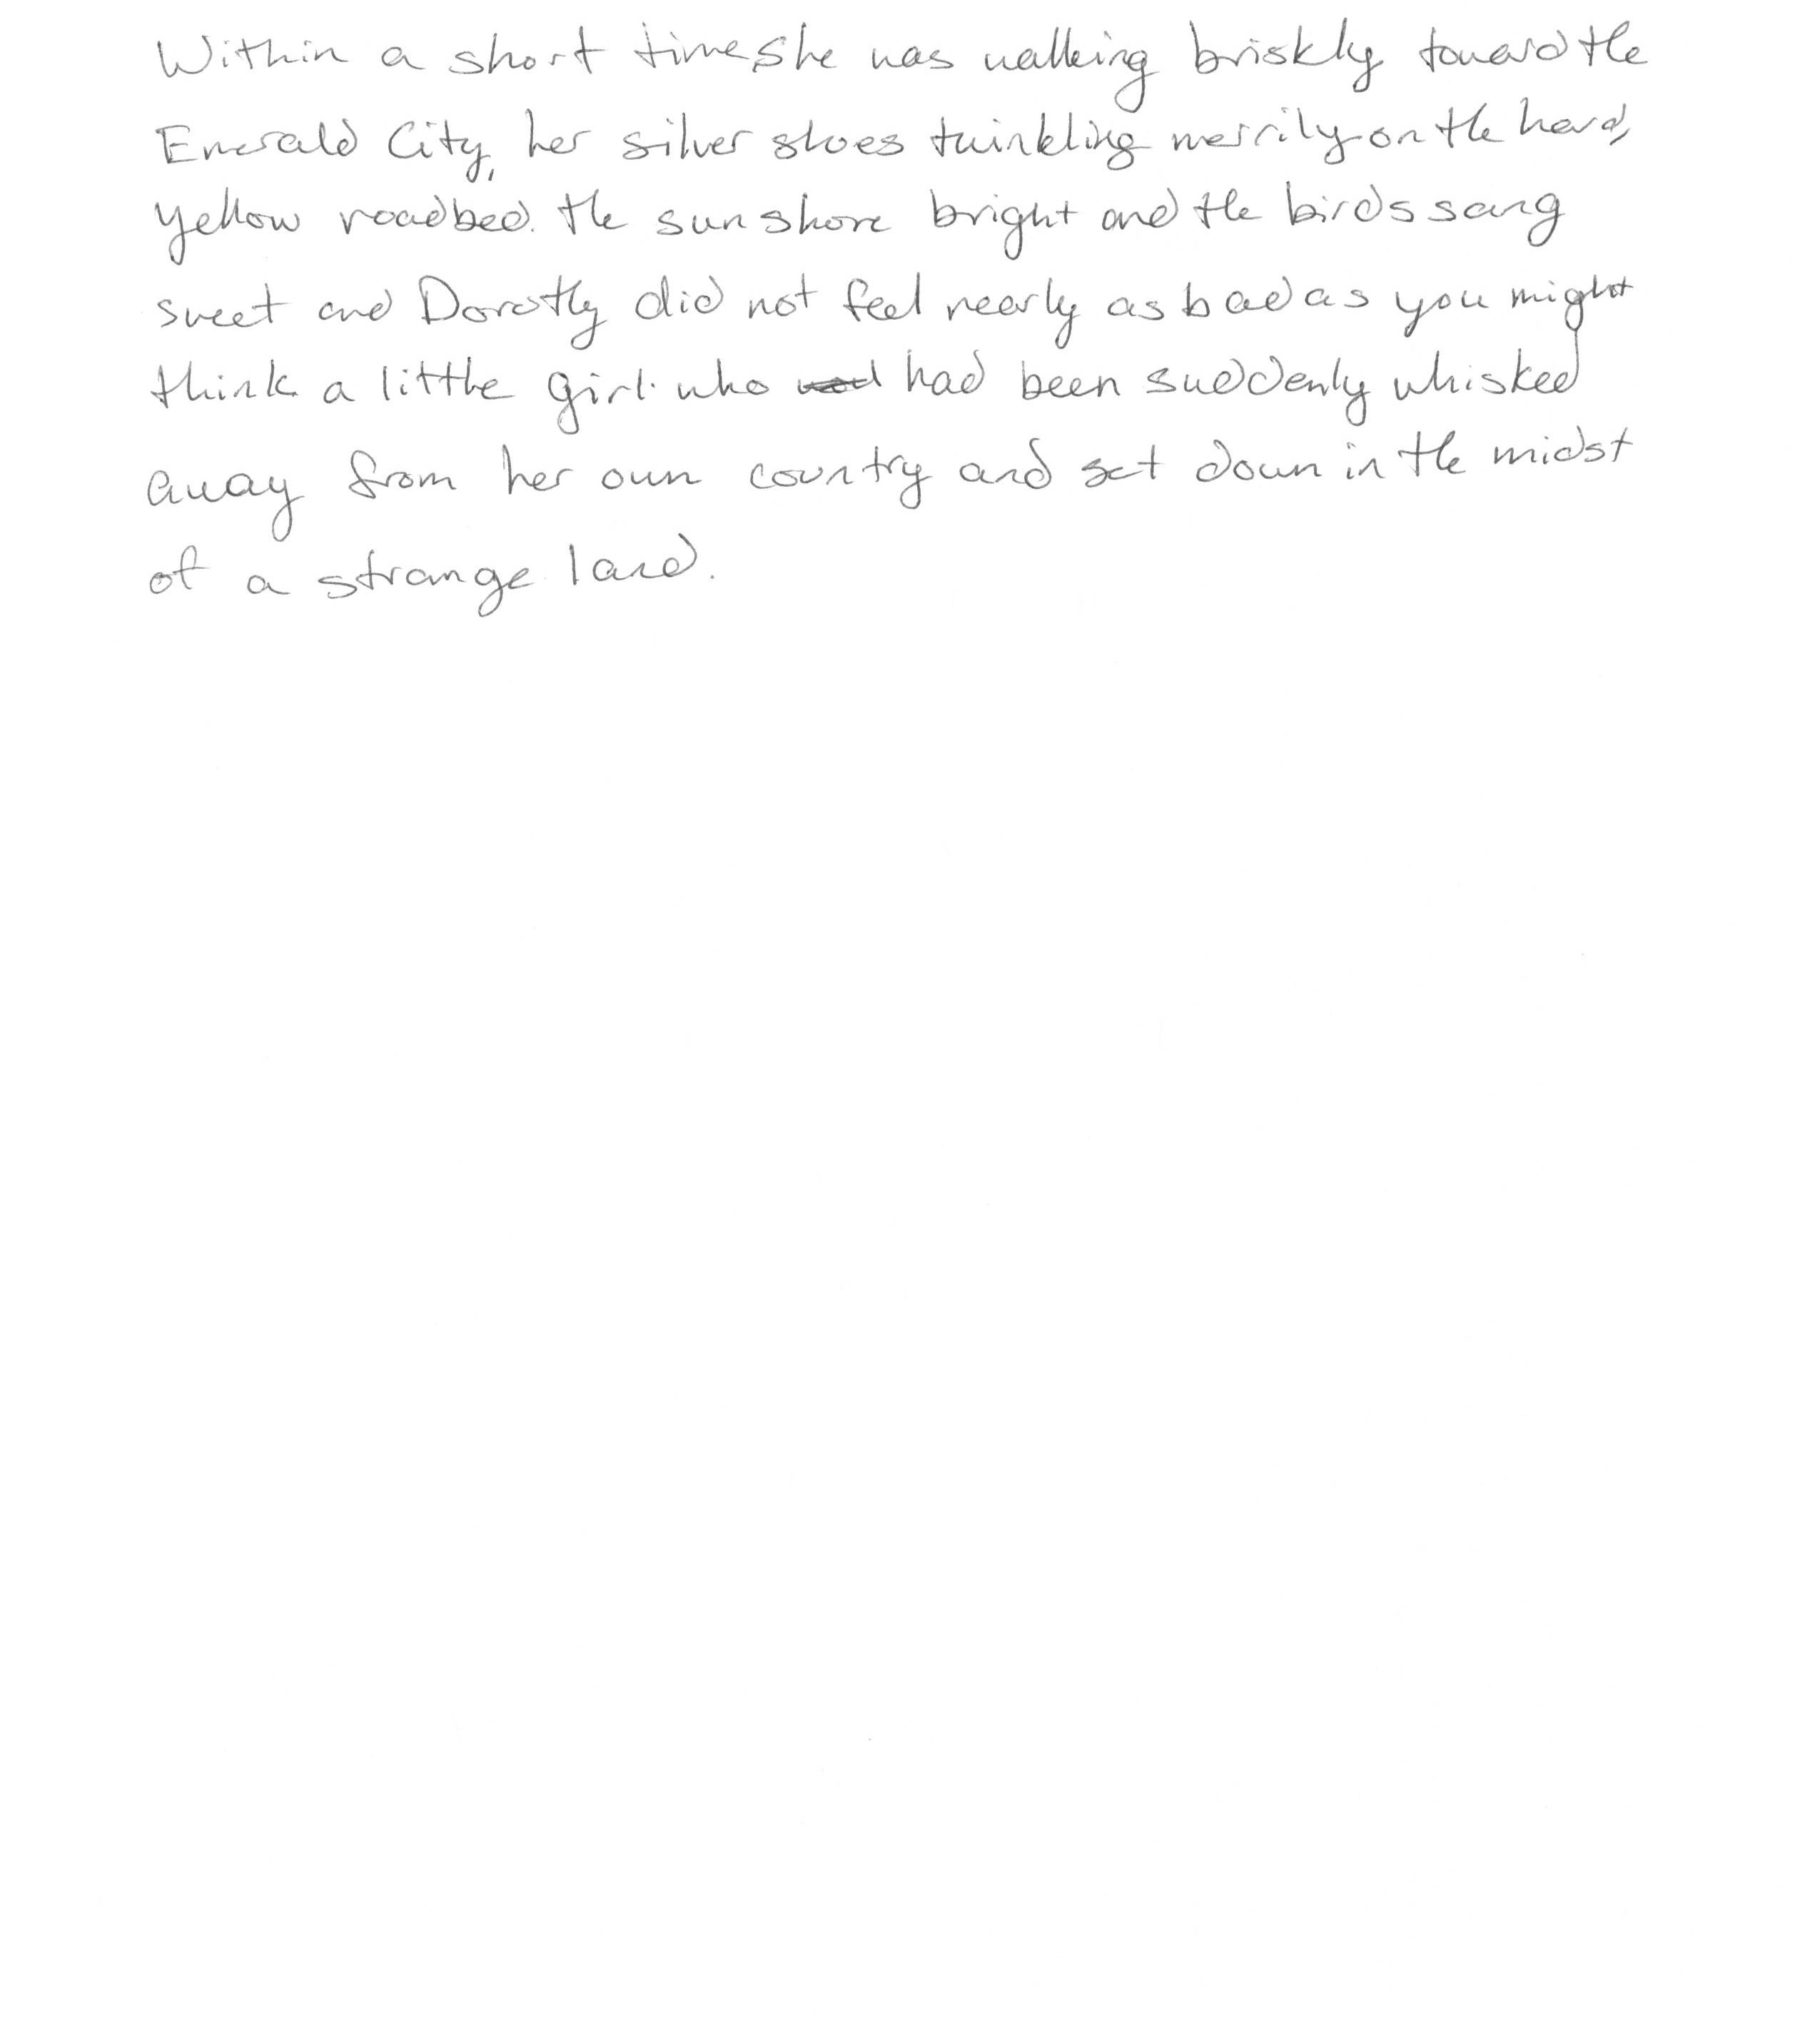 Within a short time, she was walking briskly toward the
Emerald City, her silver shoes twinkling merrily on the hard,
yellow roadbed. The sun shone bright and the birds sang
sweet and Dorothy did not feel nearly as bad as you might
think a little girl who had been suddenly whisked
away from her own country and set down in the midst
of a strange land.